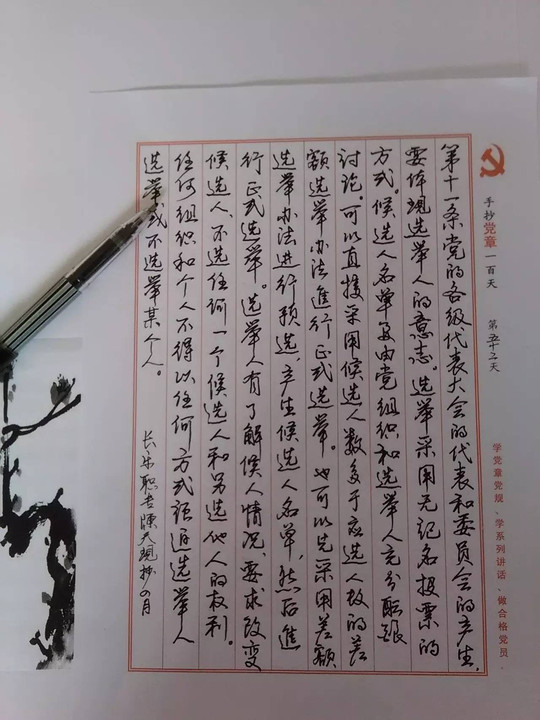 手抄党章一百天 第五十二天
学党章党规、学系列讲话、做合格党员。
第十一条党的各级代表大会的代表和委员会的产生,
要体现选举人的意志。选举采用无记名投票的
方式。候选人名单要由党组织和选举人充分酝酿
讨论。可以直接采用候选人数多于应选人数的差
额选举办法进行正式选举。也可以先采用差额
选举办法进行预选,产生候选人名单,然后进
行正式选举。选举人有了解候人情况、要求改变
候选人、不选任何一个候选人和另选他人的权利。
任何组织和个人不得以任何方式强迫选举人
选举或不选举某个人。
职 抄 月